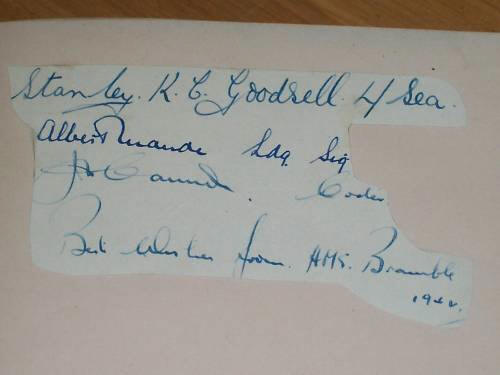 Stanley. K. C. Goodsell. L/Sea.
Albert Maude Ldg. Sig
Coder
Best Wishes from. HMS. Bramble